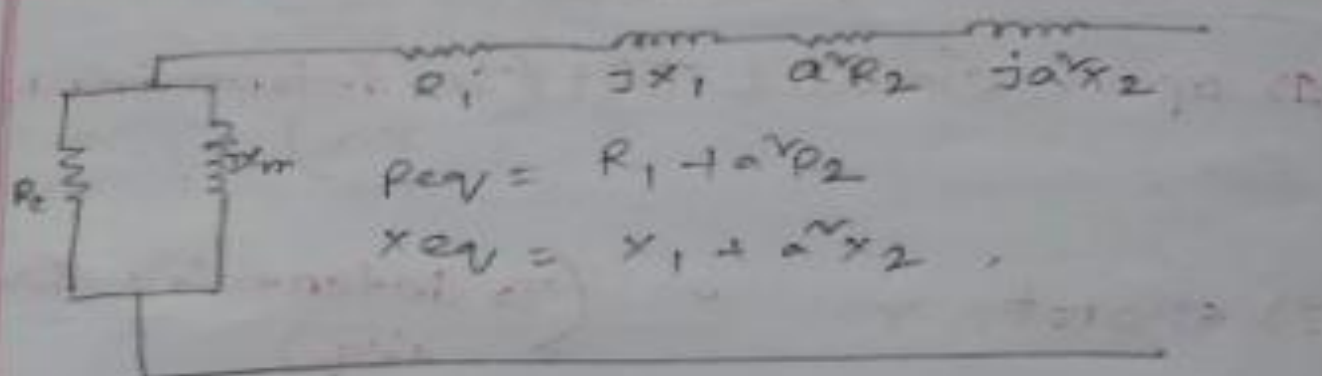 R₁ jx₁ a²R₂ ja²x₂
Rc jxm
Req = R₁ + a²R₂
xeq = x₁ + a²x₂